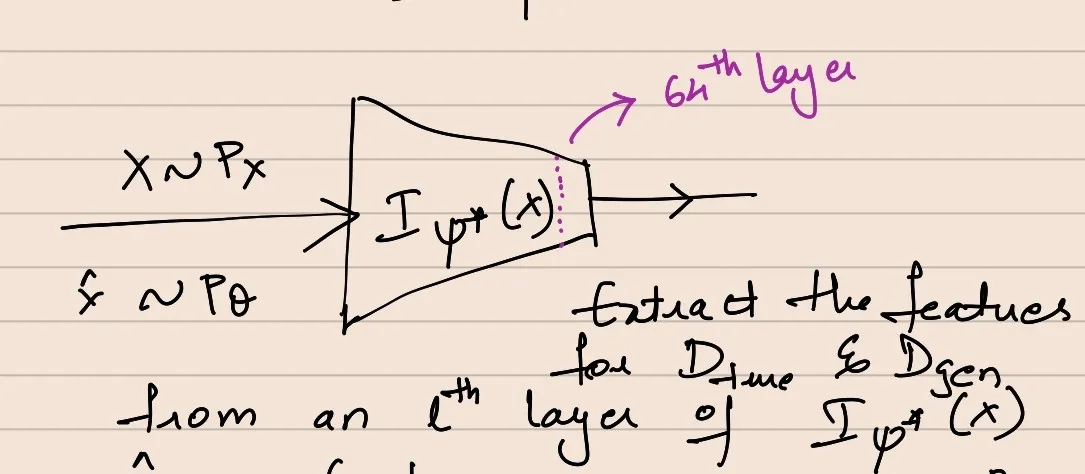 64th layer
X ~ Px
I φ* (x)
x̂ ~ Pθ
Extract the features
for Dtrue & Dgen
from an lth layer of Iφ* (x)